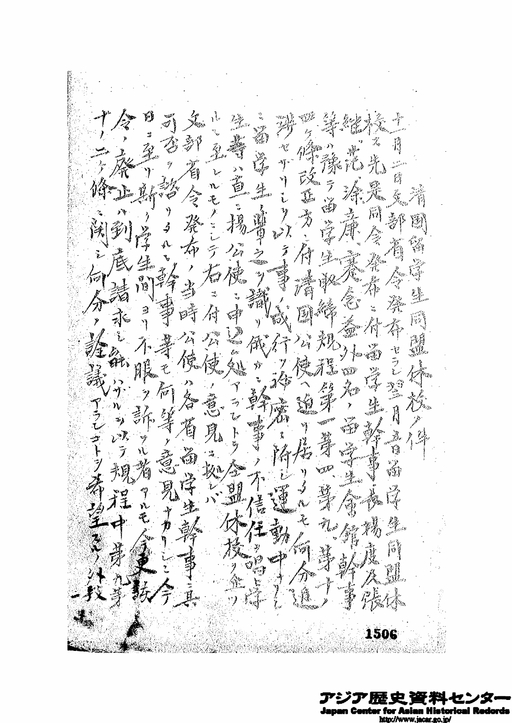 清國留学生同盟休校ノ件
十一月二日文部省令発布セラレ翌月五日留学生同盟休
校ス先是同令発布ニ付留学生幹事長楊度及張
継、范、涂、康、蹇念益外四名ノ留学生會館幹事
等ハ豫テ留学生取締規程第一第四第九第十ノ
四ヶ條改正方ニ付清國公使ヘ迫リ居リタルモ何分進
渉セザリシヲ以テ事ノ成行ヲ秘密ニ附シ運動中ナリシ
ニ留学生ノ覺之ヲ識リ俄カニ幹事ノ不信任ヲ唱ヘ学
生等ハ直ニ楊公使ニ申込ム処アラントシ全盟休校ヲ企ツ
ルニ至レルモノニシテ右ニ付公使ノ意見ニ拠レバ
文部省令発布ノ当時公使ハ各省留学生幹事ニ其
可否ヲ諮リタルニ幹事等モ何等ノ意見ナカリシニ今
日ニ至リ斯ク学生間ヨリ不服ヲ訴フル者アルモ今更該
令ノ廃止ハ到底請求シ能ハザルヲ以テ規程中第九第
十ノ二ヶ條ニ関シ何分ノ詮議アランコトヲ希望スルノ外致
1506
アジア歴史資料センター
Japan Center for Asian Historical Records
http://www.jacar.go.jp/